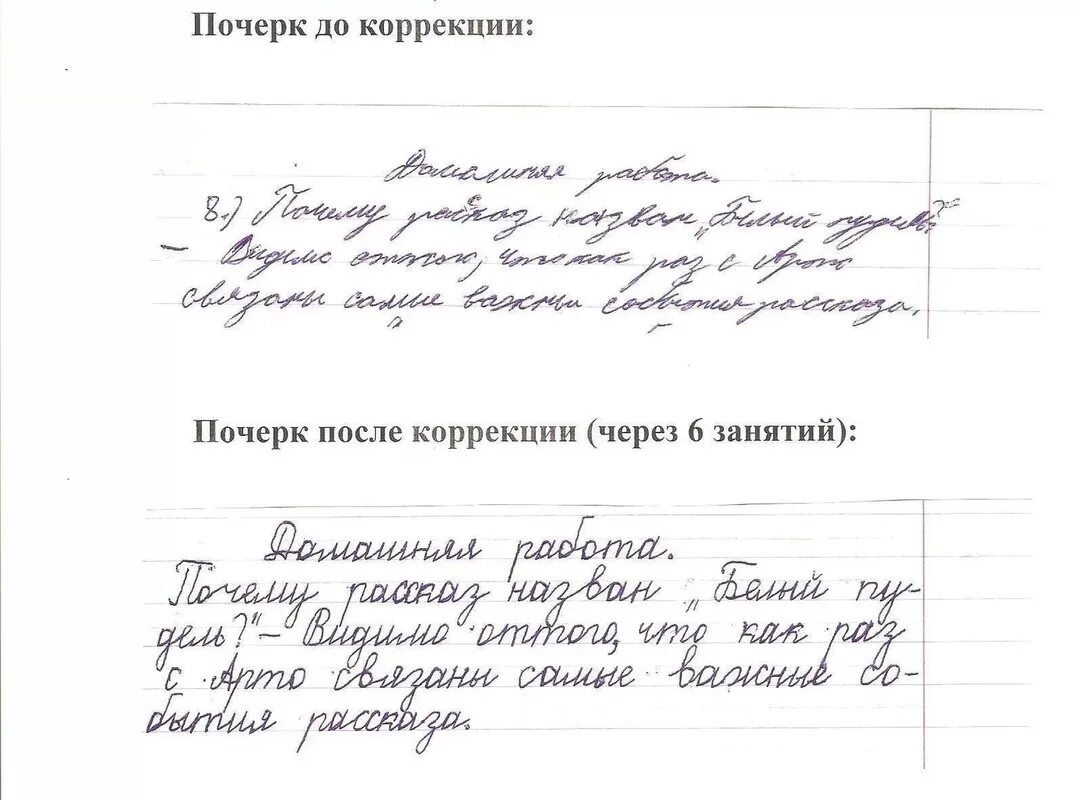 Почерк до коррекции:
Домашняя работа.
8.) Почему рассказ назван „Белый пудель?"
– Видимо оттого, что как раз с Арто
связаны самые важны события рассказа.
Почерк после коррекции (через 6 занятий):
Домашняя работа.
Почему рассказ назван „Белый пу-
дель?"– Видимо оттого, что как раз
с Арто связаны самые важные со-
бытия рассказа.